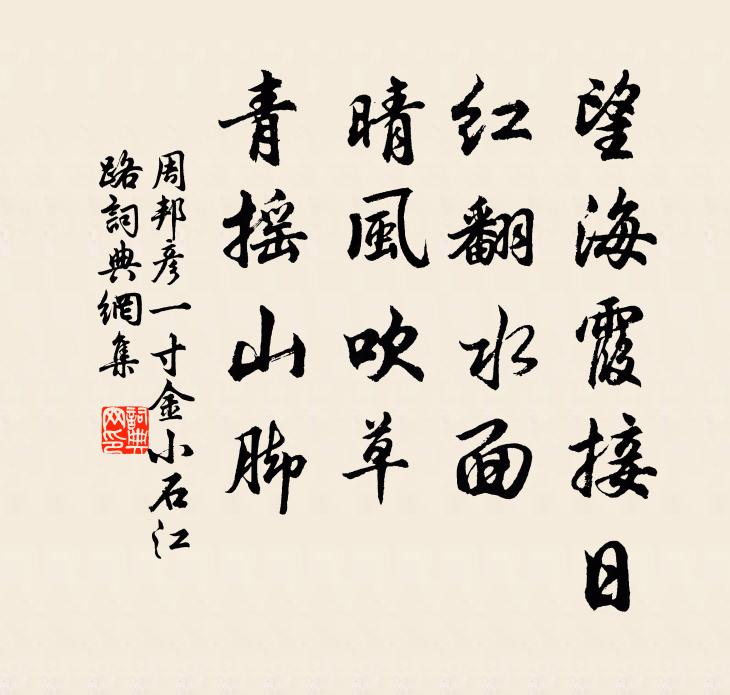 望海霞接日
红翻水面
晴風吹草
青摇山脚
周邦彦一寸金小石江
路詞典網集
詞典
网印